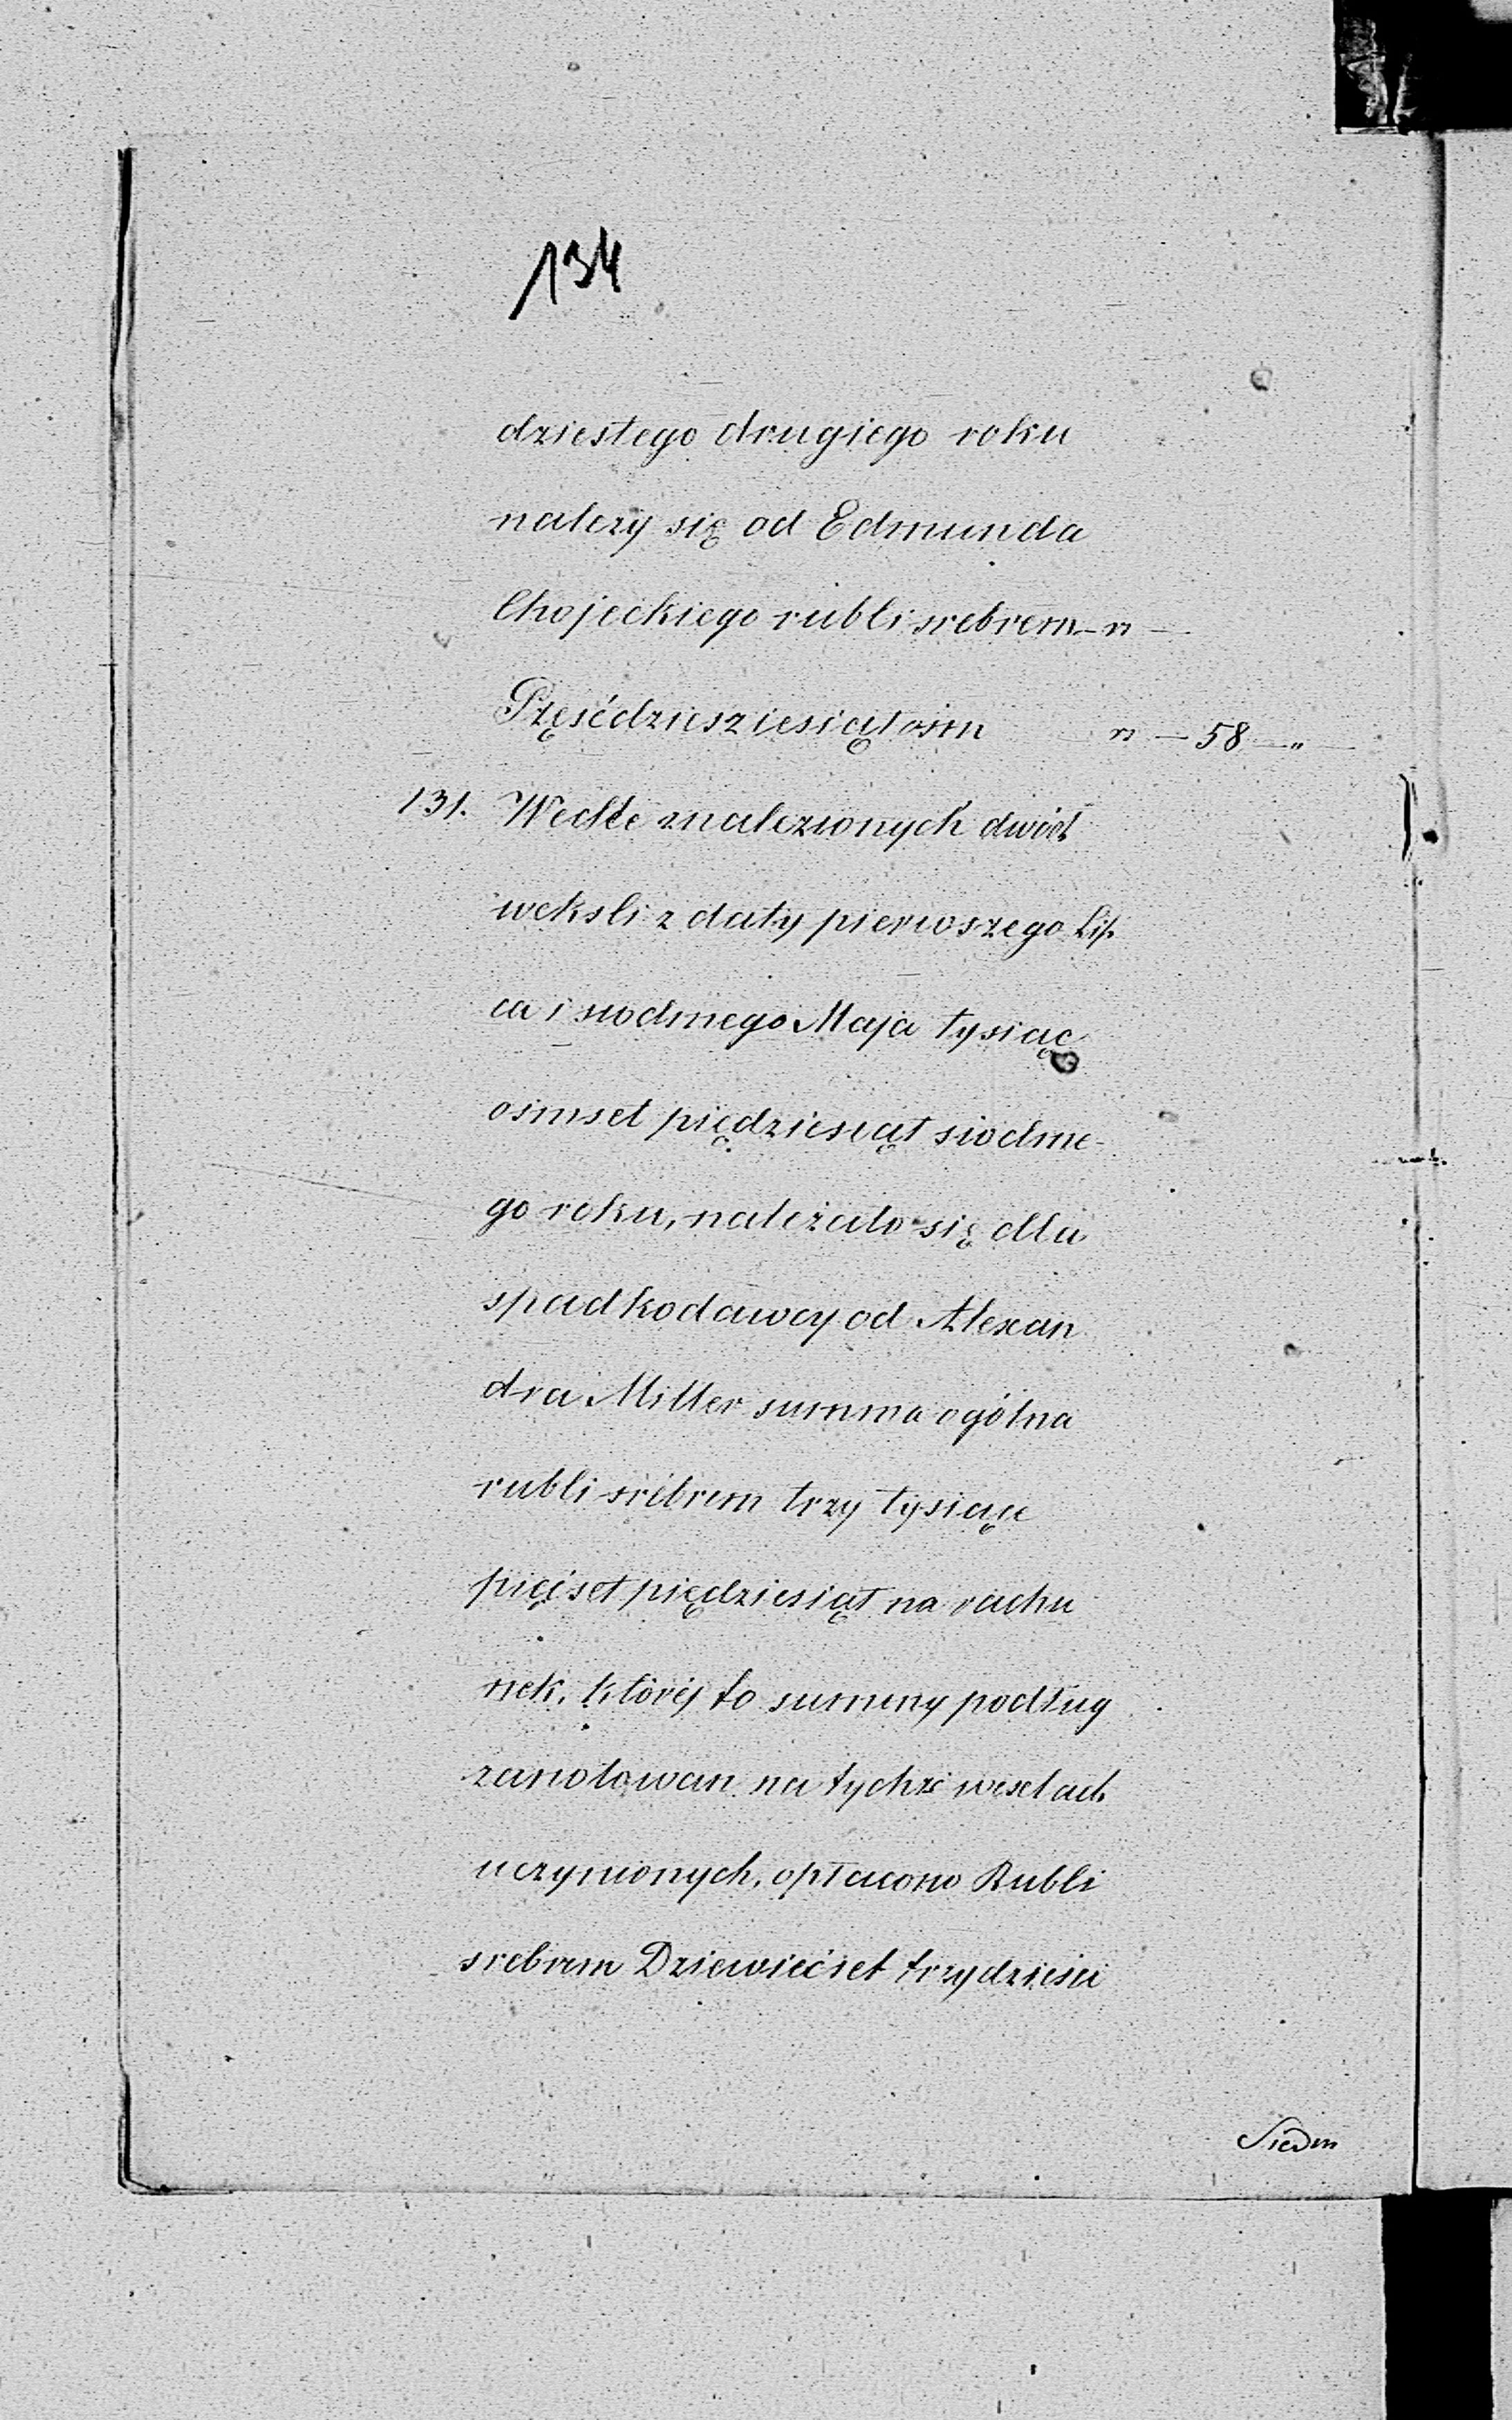 134
dziestego drugiego roku
należy się od Edmunda
Chojeckiego rubli srebrem — " —
Pięśćdziesziesiątośm " — 58 — "
131. Wedle znalezionych dwóch
weksli z daty pierwszego Lip
ca i siodmego Maja tysiąc
ośmset piędziesiąt siodme-
go roku, należało się dla
spadkodawcy od Alexan
dra Miller summa ogólna
rubli srebrem trzy tysiące
pięćset piędziesiąt na rachu
nek, której to summy podług
zanotowan na tychże wexlach
uczynionych, opłacono Rubli
srebrem Dziewięćset trzydzieści
Siedm